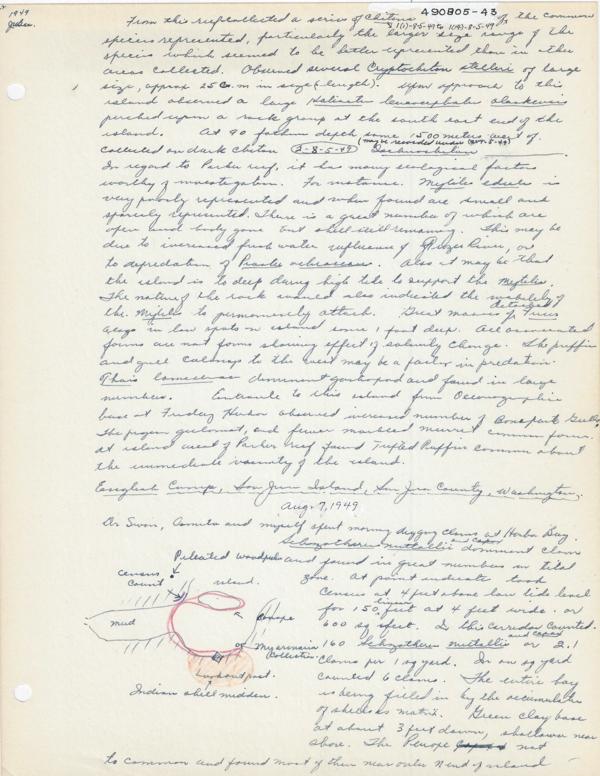 1949
490805-43
From this reef collected a series of Chitons of the common
3 1(1)-8-5-49 to 1(19)-8-5-49
species represented, particularly the larger size range of the
species which seemed to be better represented than in other
areas collected. Observed several Cryptochiton stelleri of large
size, approx 25 cm in size (length). Upon approach to this
island observed a large Haliaeetus leucocephalus alaskensis
perched upon a rock group at the south east end of the
island. At 90 fathom depth some 1500 meters west of.
collected on dark chiton 3-8-5-49 (may be recorded under
In regard to Parker reef, it has many ecological factors
worthy of investigation. For instance. Mytilus edulis is
very poorly represented and when found are small and
sparcely represented. There is a great number of which are
open and body gone but shell still remaining. This may be
due to increased fresh water influence of Frazer River, or
to depredation of Pisaster ochraceous. Also it may be that
the island is to deep during high tide to support the Mytilus.
The nature of the rock would also indicate the inability of
the Mytilus to permanently attach. Great masses of detached Fucus
algae in low spots on island some 1 foot deep. All associated
forms are not forms showing effect of salinity change. The puffin
and gull colonys to the west may be a factor in predation.
Thais lamellosa dominent gastropod and found in large
numbers. Enroute to this island from Oceanographic
base at Friday Harbor observed increased number of Bonapart Gulls,
The pigeon guillemot, and fewer marbled murret common form.
at island west of Parker reef found Tufted Puffin common about
the immediate vicinity of the island.
English Camp, San Juan Island, San Juan County, Washington.
Aug. 7, 1949
Dr Swan, and myself spent morning digging clams at Horba Bay.
Schizothaerus nuttallii and capax dominent clam
Pileated woodpecker
and found in great numbers in tidal
census count
island.
zone. At point indicate took
census at 4 feet above low tide level
for 150 feet at 4 feet wide. or
mud
600 sq feet. In this corredor counted.
Myaarinaria
160 Schizothaerus nuttallii and capax or 2.1
(Collected
clams per 1 sq yard. In an sq yard
Lookout post.
counted 6 clams. The entire bay
Indian shell midden.
is being filled in by the accumulation
of shell as matrix. Green clay base
at about 3 feet down, shallower near
shore. The Penope not
to common and found most of them near outer N end of island